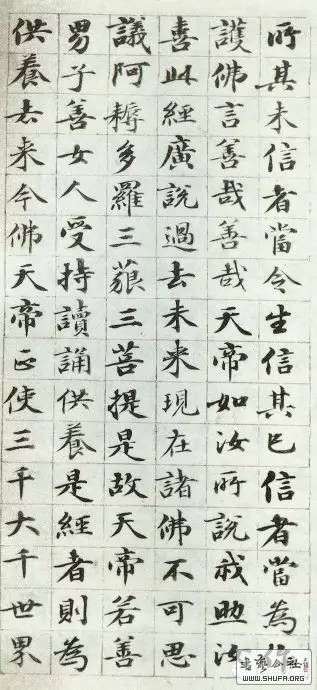 所其未信者當令生信其已信者當為作
護佛言善哉善哉天帝如汝所說我助汝
喜此經廣說過去未来現在諸佛不可思
議阿耨多羅三藐三菩提是故天帝若善
男子善女人受持讀誦供養是經者則為
供養去来今佛天帝正使三千大千世界
書藝公社
WWW.SHUFA.ORG